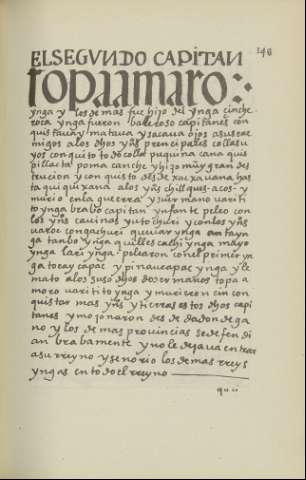 148
EL SEGVNDO CAPITAN
topa amaro
ynga y los demas fue hijo del ynga cinche
roca ynga fueron balleroso capitanes con
quistaua y mataua y sacaua ojos a sus ene
migos a los dhos yñs prencipales collasu
yos conquito todo collas puquina cana quis
pillacta poma canche y hizo muy gran des
trucion y conquisto desde xauxa uanchas
ta quiquixana a los yñs chillques acos y
murio en la guerra y su ermano uarit
to ynga brabo capitan ynfante peleo con
los yñs cauinas y uto chiri y con los yñs
uaroc con gachuri quiuar ynga an tayn
ga tanbo ynga quilles cachi ynga mayo
ynga lari ynga pelearon con el primer yn
ga tocay capac y pinau capac ynga y le
mato a los suso dhos dos ermanos topa a
moro uaritito ynga y murieron cin con
quistar mas yñs y tierras estos dhos capi
tanes y mojonaron desde dadonde ga
no y los demas provincias se defendi
an brabamente y no le dejaua entrar
a su rreyno y señorio los demas rreys
yngas en todo el rreyno